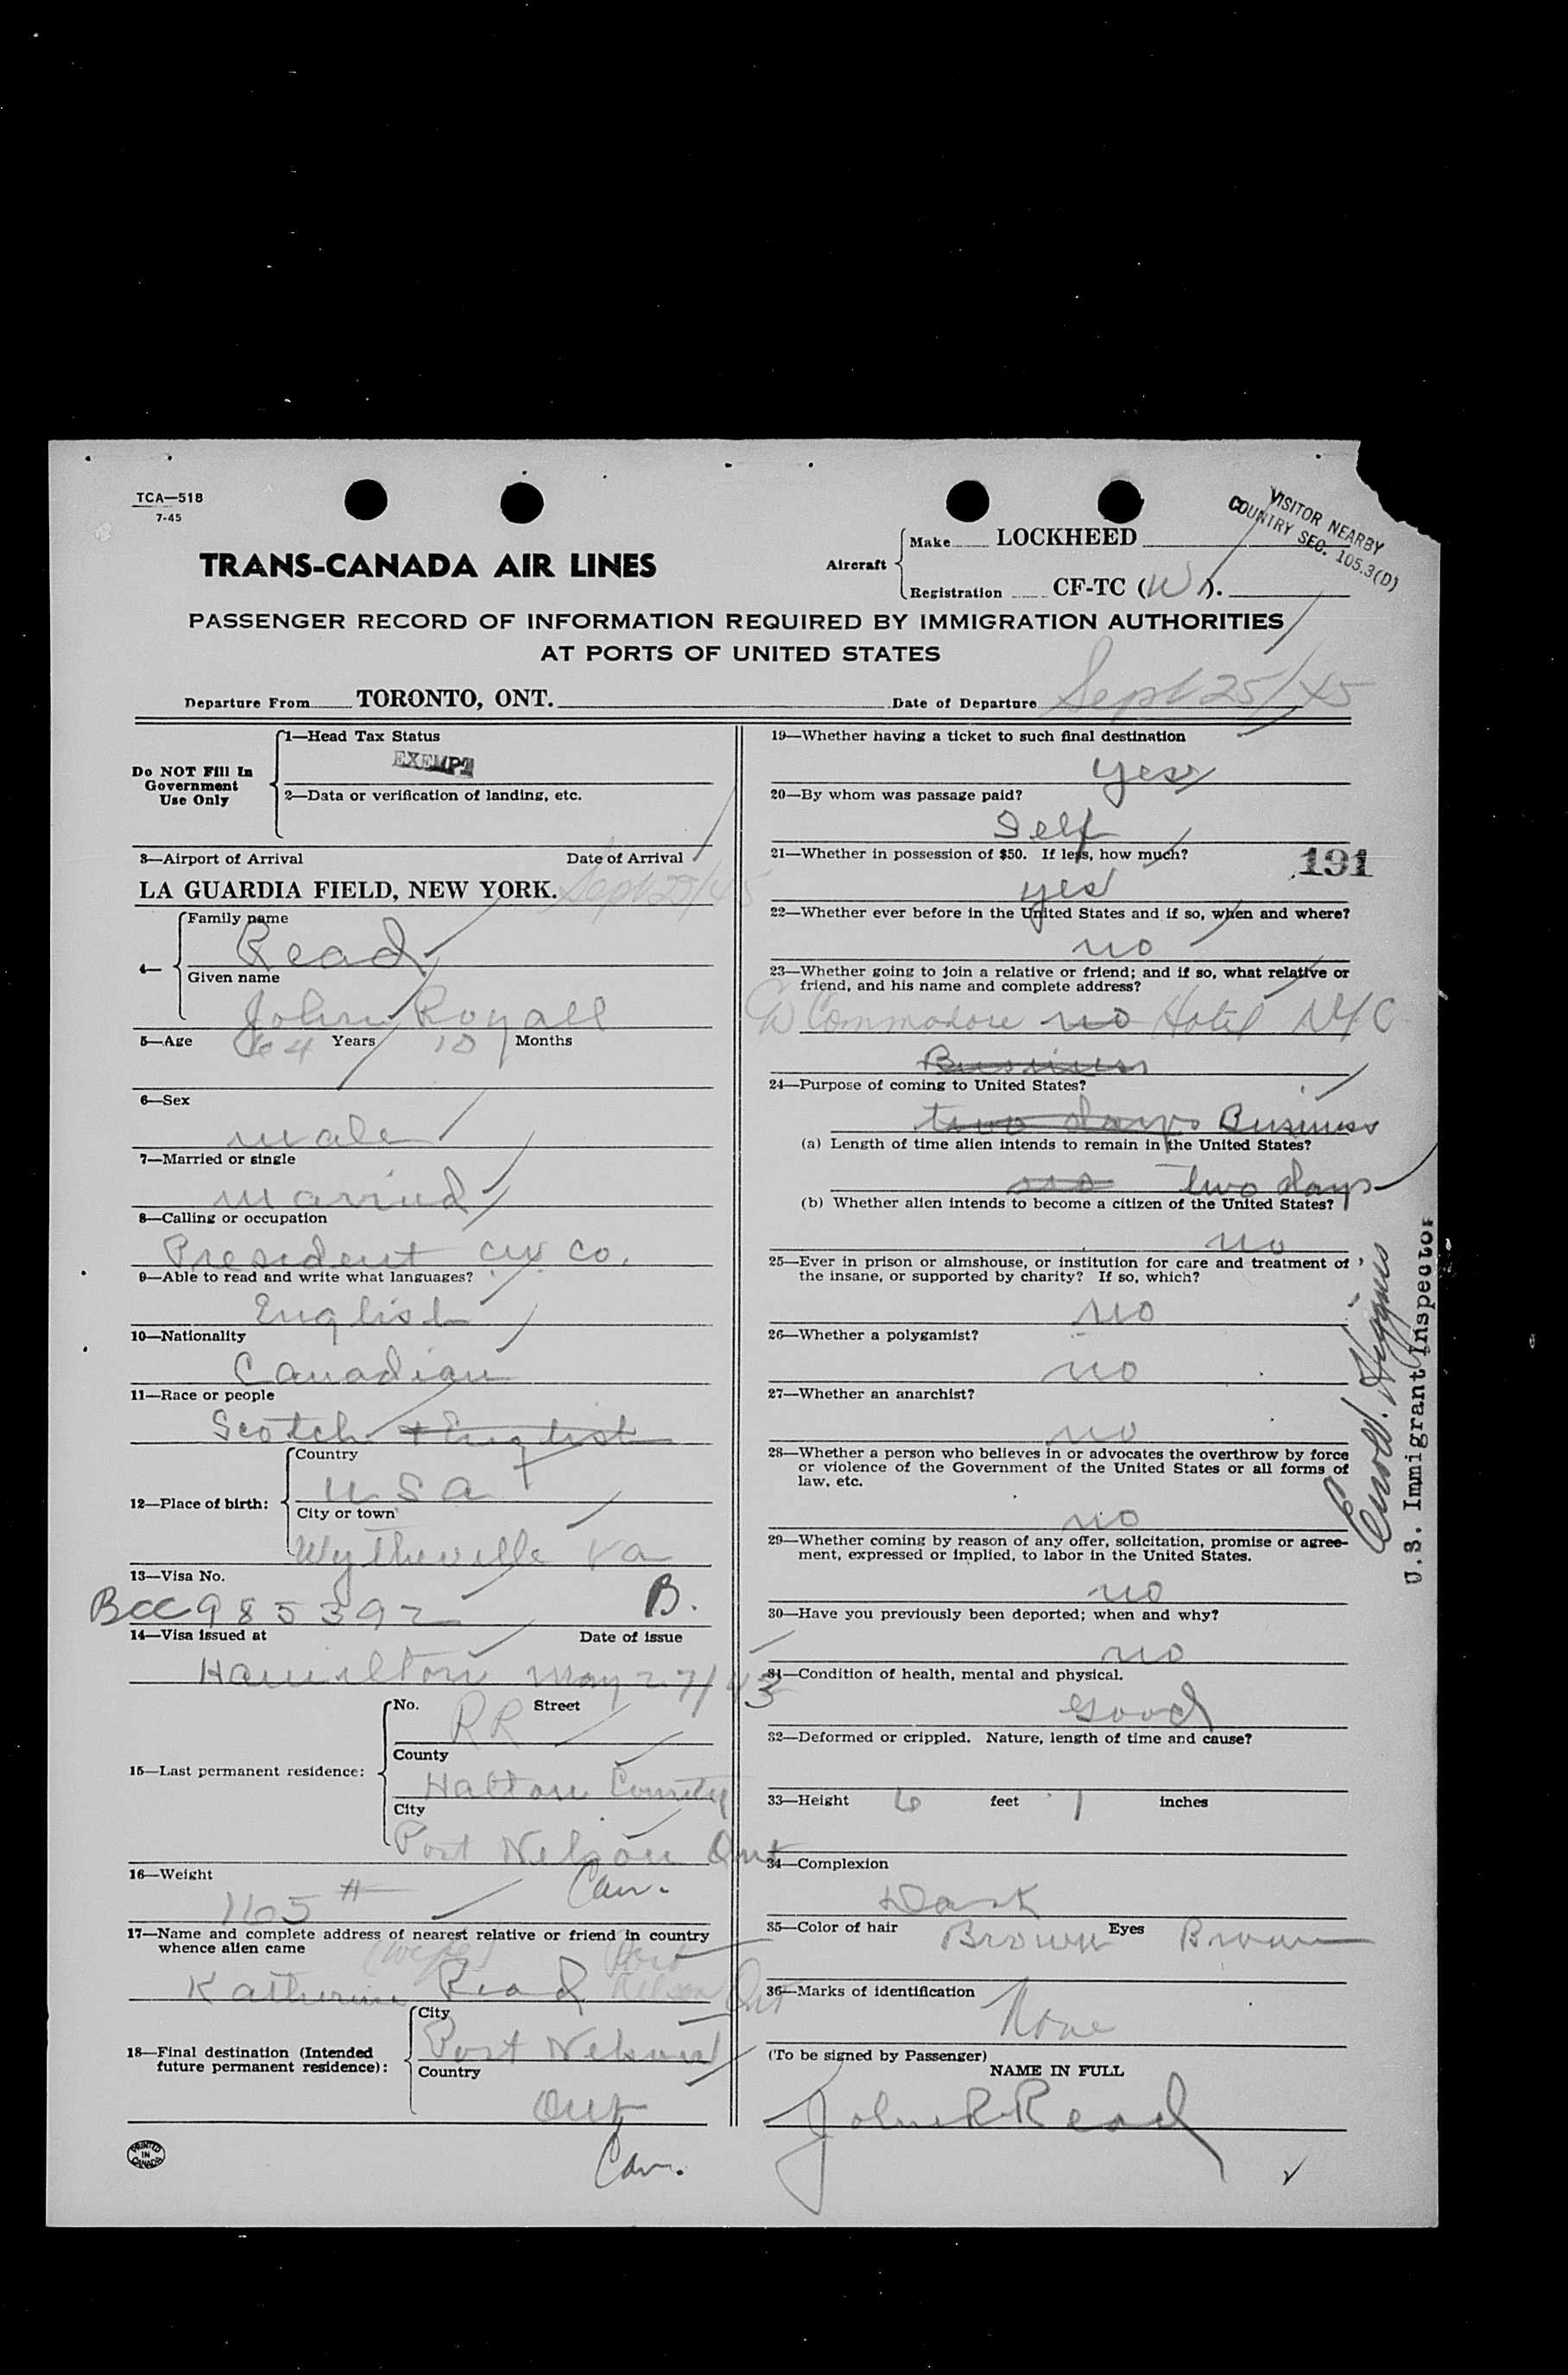 TCA—518
7-45
VISITOR NEARBY
COUNTRY SEC. 105.3(D)
TRANS-CANADA AIR LINES
Aircraft
Make LOCKHEED
Registration CF-TC (W).
PASSENGER RECORD OF INFORMATION REQUIRED BY IMMIGRATION AUTHORITIES
AT PORTS OF UNITED STATES
Departure From TORONTO, ONT. Date of Departure Sept 25/45
Do NOT Fill In
Government
Use Only
1—Head Tax Status
EXEMPT
2—Data or verification of landing, etc.
3—Airport of Arrival Date of Arrival
LA GUARDIA FIELD, NEW YORK. Sept 25/45
4—
Family name
Read
Given name
John Royall
5—Age 64 Years 10 Months
6—Sex
male
7—Married or single
married
8—Calling or occupation
President Co.
9—Able to read and write what languages?
English
10—Nationality
Canadian
11—Race or people
Scotch + English
12—Place of birth:
Country
USA
City or town
Wytheville Va
13—Visa No.
BCC 985392 B.
14—Visa issued at Date of issue
Hamilton May 27/43
15—Last permanent residence:
No. Street
RR
County
Halton County
City
Port Nelson Ont
Can.
16—Weight
165 #
17—Name and complete address of nearest relative or friend in country
whence alien came
(wife) Port
Katherine Read Nelson Ont
18—Final destination (Intended
future permanent residence):
City
Port Nelson
Country
Ont
Can.
PRINTED
IN
CANADA
19—Whether having a ticket to such final destination
yes
20—By whom was passage paid?
Self
21—Whether in possession of $50. If less, how much?
191
yes
22—Whether ever before in the United States and if so, when and where?
no
23—Whether going to join a relative or friend; and if so, what relative or
friend, and his name and complete address?
Commodore no Hotel NYC
Business
24—Purpose of coming to United States?
two days Business
(a) Length of time alien intends to remain in the United States?
no two days
(b) Whether alien intends to become a citizen of the United States?
no
25—Ever in prison or almshouse, or institution for care and treatment of
the insane, or supported by charity? If so, which?
no
26—Whether a polygamist?
no
27—Whether an anarchist?
no
28—Whether a person who believes in or advocates the overthrow by force
or violence of the Government of the United States or all forms of
law, etc.
no
29—Whether coming by reason of any offer, solicitation, promise or agree-
ment, expressed or implied, to labor in the United States.
no
30—Have you previously been deported; when and why?
no
31—Condition of health, mental and physical.
Good
32—Deformed or crippled. Nature, length of time and cause?
33—Height 6 feet 1 inches
34—Complexion
Dark
35—Color of hair Brown Eyes Brown
36—Marks of identification
None
(To be signed by Passenger)
NAME IN FULL
John R Read
Higgins
U.S. Immigrant Inspector